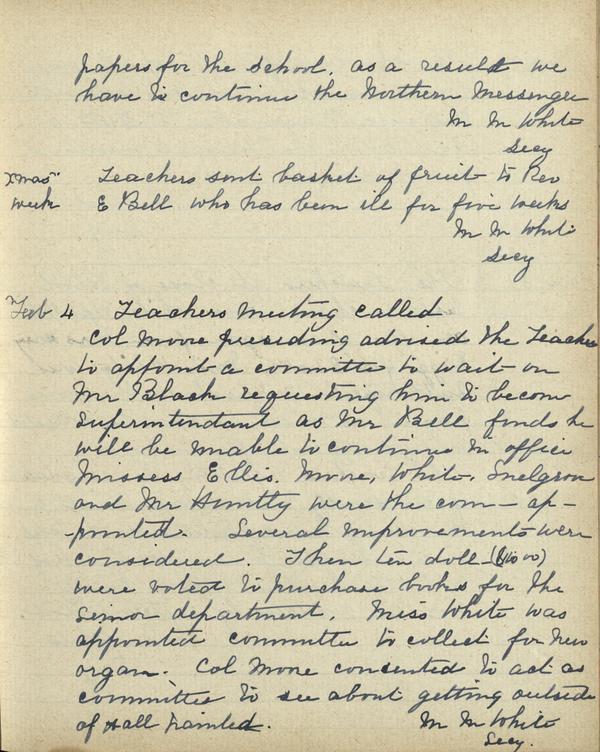 papers for the school. as a result we
have to continue the Northern Messenger
M M White
Secy
Xmas Teachers sent basket of fruit to Rev
week E Bell who has been ill for five weeks
M M White
Secy
Feb 4 Teachers meeting called
Col Moore presiding advised the Teachers
to appoint a committee to wait on
Mr Black requesting him to become
Superintendant as Mr Bell finds he
will be unable to continue in office
Missess Ellis. Moore, White, Snelgrove
and Mr Huntly were the com- ap-
-pointed. Several improvements were
considered. Then ten doll- ($10 00)
were voted to purchase books for the
senior department. Miss White was
appointed committee to collect for new
organ. Col Moore consented to act as
committee to see about getting outside
of Hall painted.
M M White
Secy.